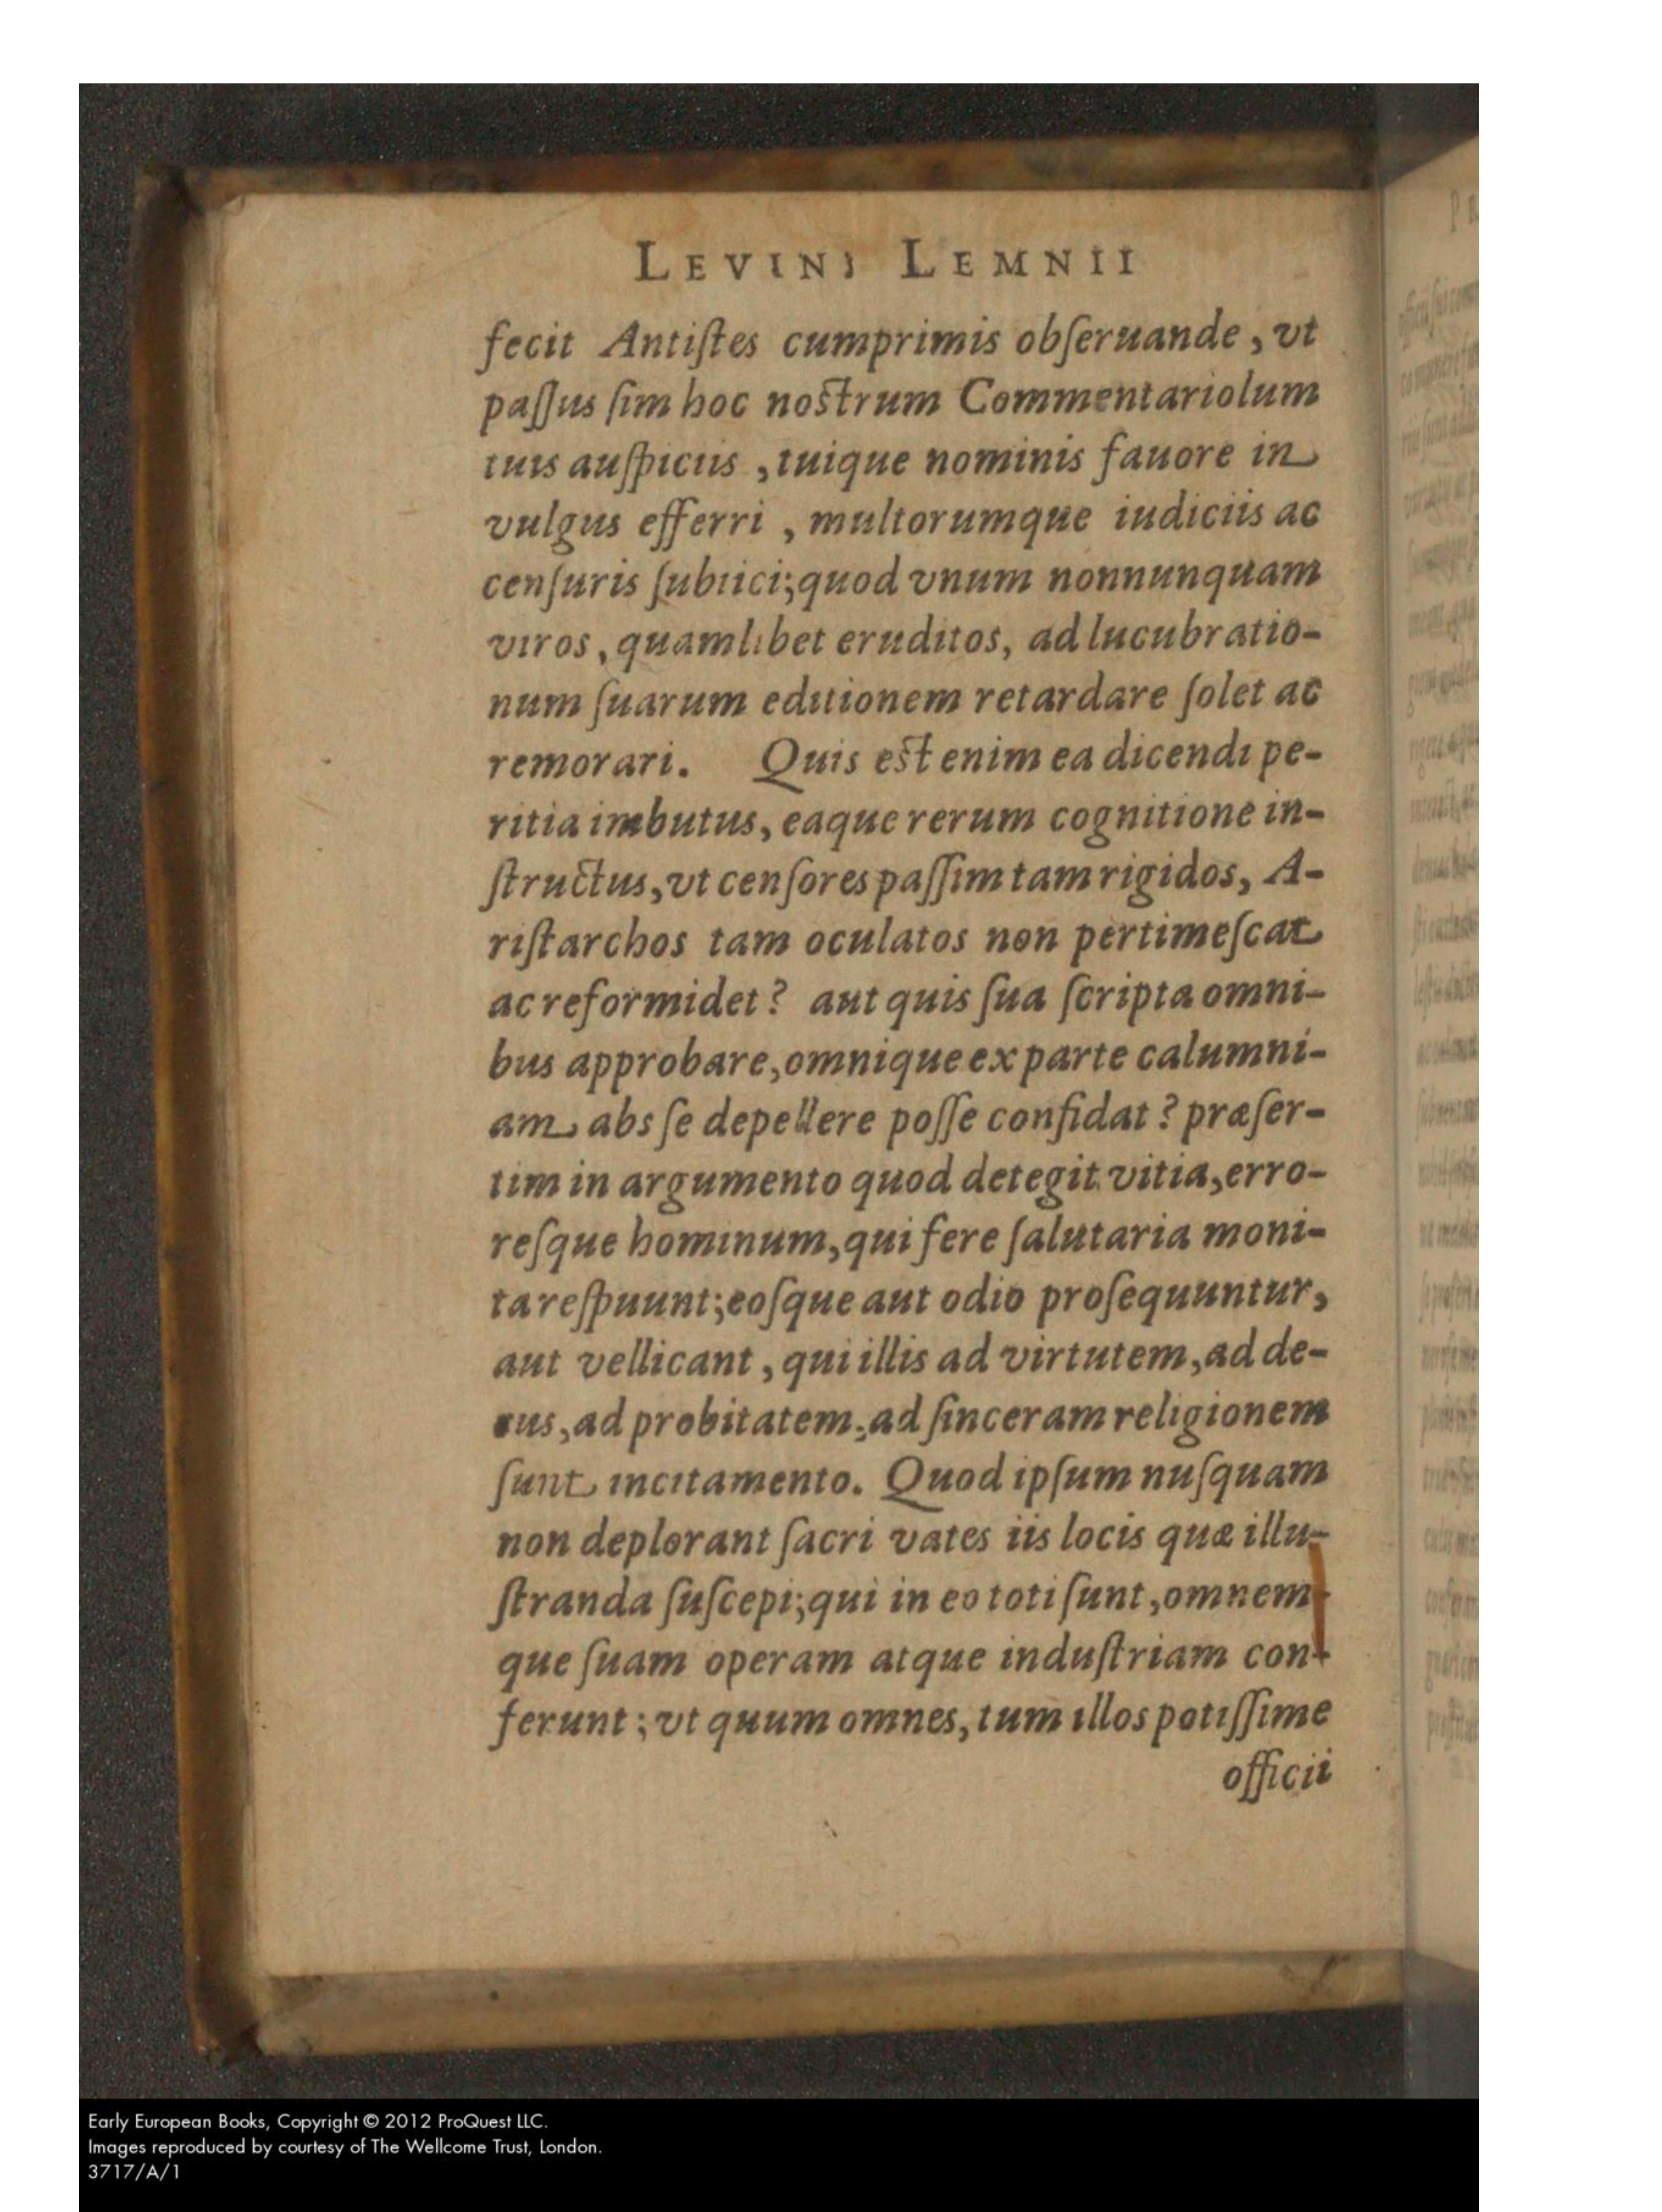 LEVINI LEMNII
fecit Antiſtes cumprimis obſeruande, vt
paſſus ſim hoc nostrum Commentariolum
tuis auſpiciis, tuique nominis fauore in
vulgus efferri, multorumque iudiciis ac
cenſuris ſubiici; quod vnum nonnunquam
viros, quamlibet eruditos, ad lucubratio-
num ſuarum editionem retardare ſolet ac
remorari. Quis est enim ea dicendi pe-
ritia imbutus, eaque rerum cognitione in-
ſtructus, vt cenſores paſſim tam rigidos, A-
riſtarchos tam oculatos non pertimeſcat
ac reformidet? aut quis ſua ſcripta omni-
bus approbare, omnique ex parte calumni-
am abs ſe depellere poſſe confidat? præſer-
tim in argumento quod detegit vitia, erro-
reſque hominum, qui fere ſalutaria moni-
ta reſpuunt; eoſque aut odio proſequuntur,
aut vellicant, qui illis ad virtutem, ad de-
cus, ad probitatem, ad ſinceram religionem
ſunt incitamento. Quod ipſum nuſquam
non deplorant ſacri vates iis locis quæ illu-
ſtranda ſuſcepi; qui in eo toti ſunt, omnem-
que ſuam operam atque induſtriam con-
ferunt; vt quum omnes, tum illos potiſſime
officii
Early European Books, Copyright © 2012 ProQuest LLC.
Images reproduced by courtesy of The Wellcome Trust, London.
3717/A/1